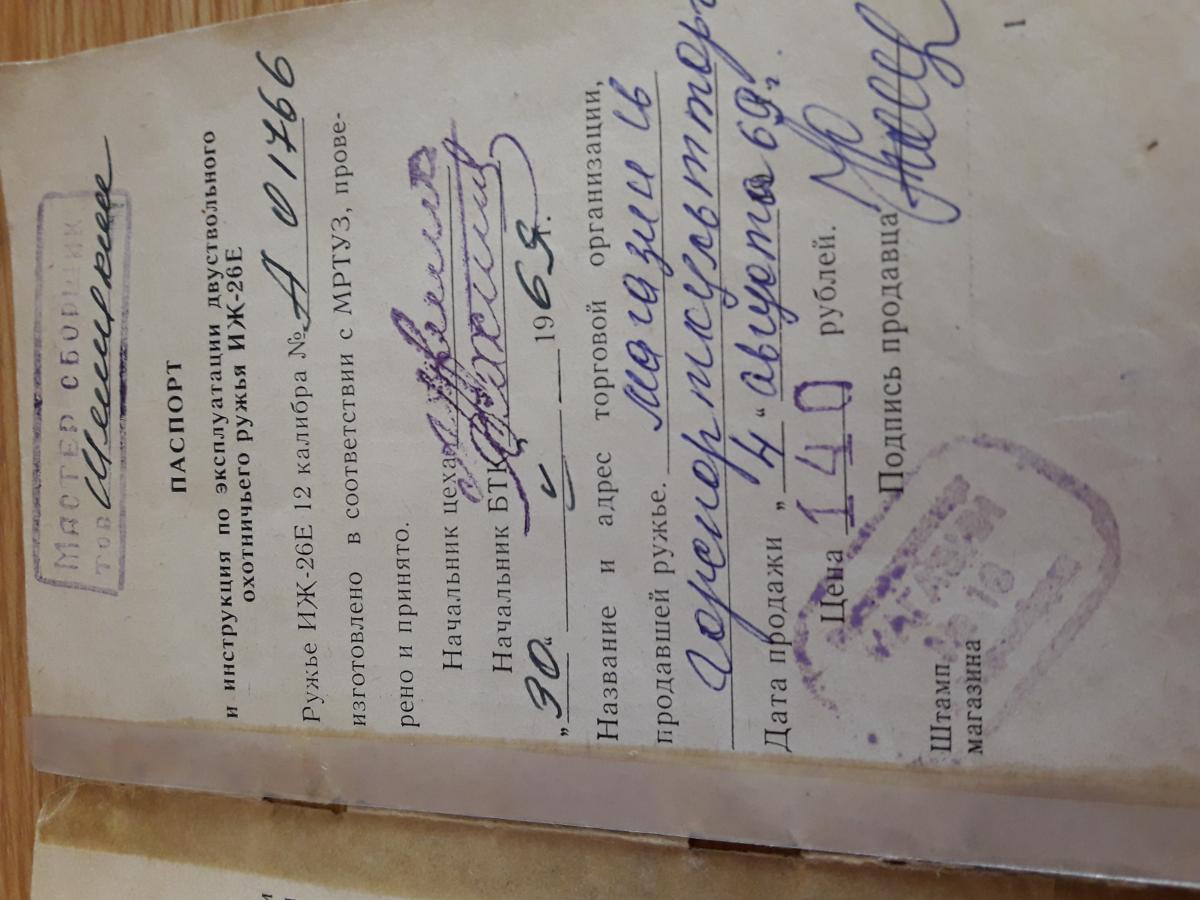 МАСТЕР СБОРЩИК
тов
ПАСПОРТ
и инструкция по эксплуатации двуствольного
охотничьего ружья ИЖ-26Е
Ружье ИЖ-26Е 12 калибра № А 01766
изготовлено в соответствии с МРТУЗ, прове-
рено и принято.
Начальник цеха
Начальник БТК
„30“ V 1969 г.
Название и адрес торговой организации,
продавшей ружье. магазин
Горспорткультторг
Дата продажи „4“ августа 69 г.
Цена 140 рублей.
Подпись продавца
Штамп
магазина
МАГАЗИН
№ 18
1